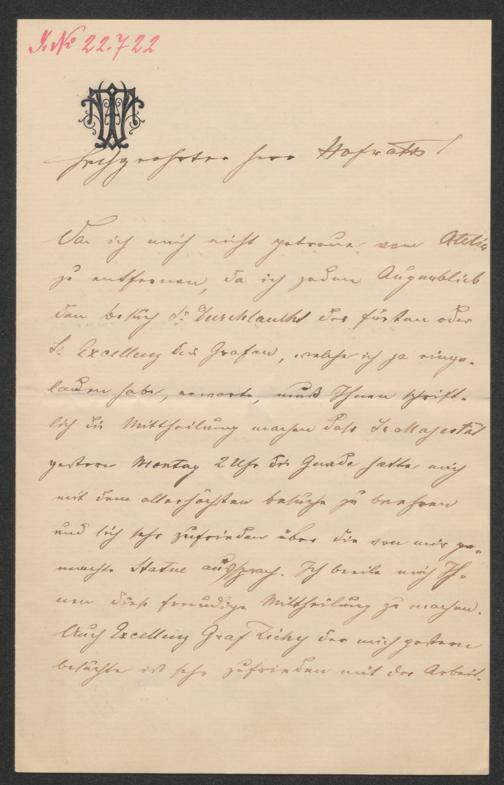 I. No 22.722
Hochgeehrter Herr Hofrath!
Da ich mich nicht getraue vom Atelier
zu entfernen, da ich jeden Augenblick
den besuch Sr Durchlaucht des fürsten oder
Sr Excellenz des Grafen, welche ich ja einge-
laden habe, erwarte, muß Ihnen schrift-
lich die Mittheilung machen daß Se Majestät
gestern Montag 2 Uhr die Gnade hatte mich
mit dem allerhöchsten besuche zu beehren
und sich sehr zufrieden über die von mir ge-
machte Statue aussprach. Ich beeile mich Ih-
nen diese freudige Mittheilung zu machen.
Auch Excellenz Graf Zichy der mich gestern
besuchte ist sehr zufrieden mit der Arbeit.